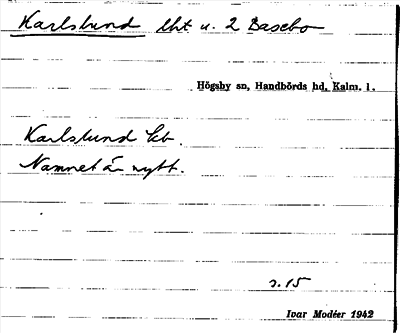 Karlslund lht u. 2 Basebo
Högsby sn, Handbörds hd, Kalm. l.
Karlslund
Namnet är nytt.
s. 15
Ivar Modéer 1942